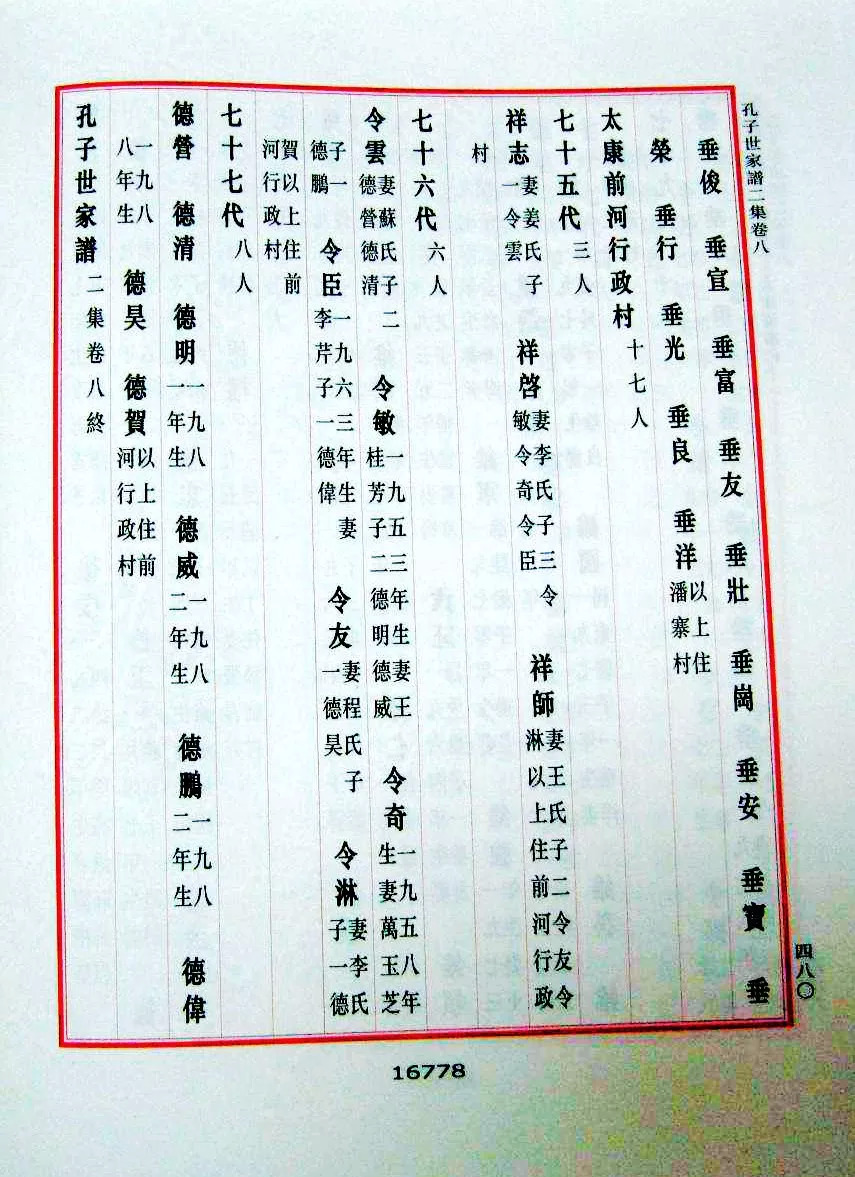 孔子世家譜二集卷八
四八〇
垂俊 垂宣 垂富 垂友 垂壯 垂崗 垂安 垂寶 垂
榮 垂行 垂光 垂良 垂洋 以上住潘寨村
太康前河行政村 十七人
七十五代 三人
祥志 妻姜氏子一令雲 祥啓 妻李氏子三令敏令奇令臣 祥師 妻王氏子二令友令淋以上住前河行政
村
七十六代 六人
令雲 妻蘇氏子二德營德清 令敏 一九五三年生妻王桂芳子二德明德威 令奇 一九五八年生妻萬玉芝
子一德鵬 令臣 一九六三年生妻李芹子一德偉 令友 妻程氏子一德昊 令淋 妻李氏子一德
賀以上住前河行政村
七十七代 八人
德營 德清 德明 一九八一年生 德威 一九八二年生 德鵬 一九八二年生 德偉
一九八八年生 德昊 德賀 以上住前河行政村
孔子世家譜 二集卷八終
16778